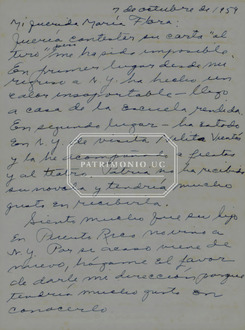 7 de octubre de 1959
Mi querida María Flora:
Quería contestar su carta "al
tiro" pero me ha sido imposible.
En primer lugar desde mi
regreso a N.Y. ha hecho un
calor insoportable - llego
a casa de la Escuela rendida.
En segundo lugar - ha estado
en N.Y. de visita Julita
y la he a fiestas
y al teatro. no ha recibido
su novela y tendría mucho
gusto en recibirla.
Siento mucho que su hijo
en Puerto Rico no vino a
N.Y. Por si acaso viene de
nuevo, hágame el favor
de darle mi dirección, porque
tendría mucho gusto en
conocerlo
PATRIMONIO UC